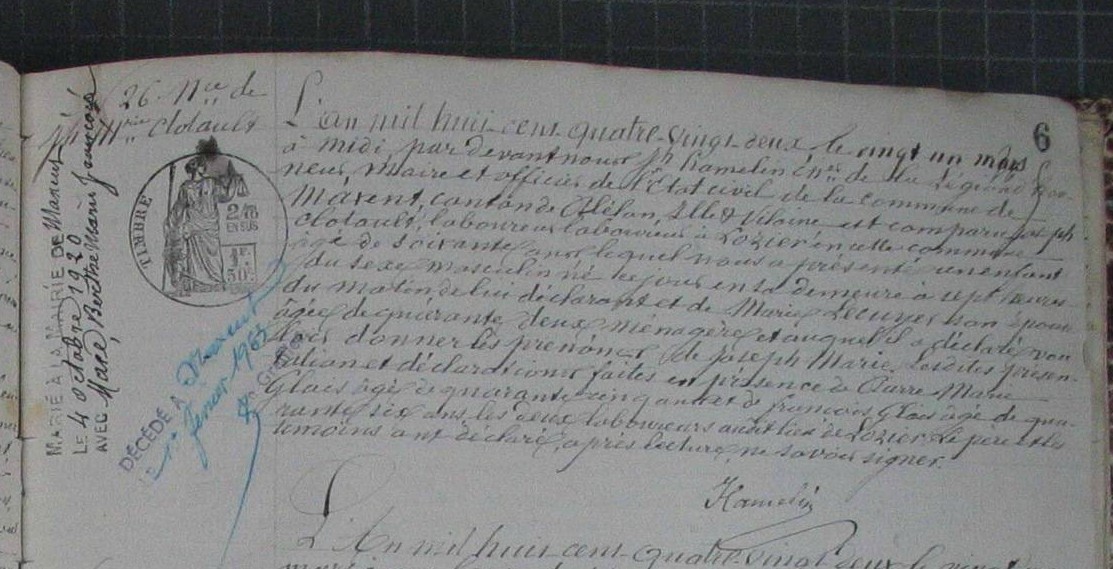 6
26. Nce de
Jh Mie Clotault
TIMBRE
2/10
EN SUS
1F
50c
MARIÉ À LA MAIRIE DE Maxent
LE 4 octobre 1920
AVEC Macé, Berthe Marie
DÉCÉDÉ A Maxent
LE 1963
L'an mil huit cent quatre-vingt-deux le vingt un mars
à midi par devant nous Jh Hamelin chr de la Légion d'hon-
neur, Maire et officier de l'Etat civil de la commune de
Maxent, canton de Plélan, Ille & Vilaine est comparu Joseph
Clotault, laboureur laboureur à Lozier en cette commune
âgé de soixante ans, lequel nous a présenté un enfant
du sexe masculin né ce jour en sa demeure à sept heures
du matin de lui déclarant et de Marie Lecuyer son épouse
âgée de quarante deux, ménagère, et auquel il a déclaré vou-
loir donner les prénoms de Joseph Marie, Lesdites présen-
tation et déclaration faites en présence de Pierre Marie
Glais âgé de quarante cinq ans et de François Glais âgé de qua-
rante six ans, les deux laboureurs audit lieu de Lozier. Le père et les
témoins ont déclaré, après lecture, ne savoir signer.
Hamelin
L'An mil huit cent quatre-vingt deux le vingt